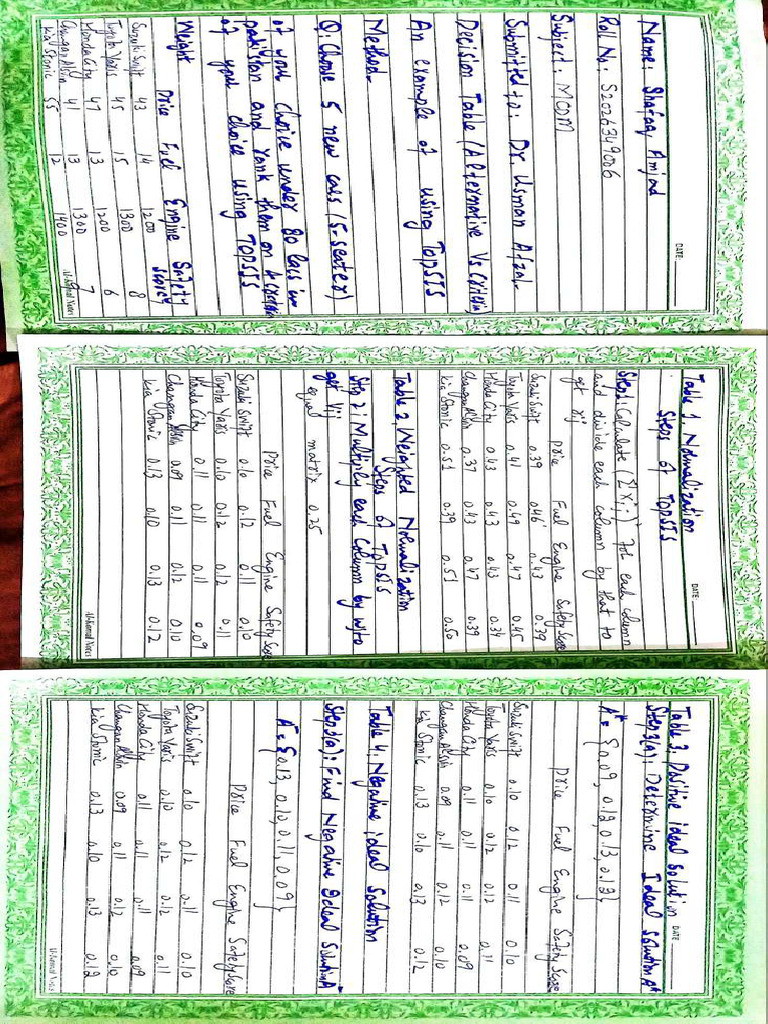 DATE:
Name: Shafaq Amjad
Roll No: S2026349006
Subject: MCDM
Submitted to: Dr. Usman Afzal
Decision Table (Alternative Vs Criteria)
An example of using TOPSIS
Method.
Q: Choose 5 new cars (5-seater)
of your choice under 80 lacs in
pakistan and rank them on 4 criteria
of your choice using TOPSIS
Weight Price Fuel Engine Safety score
Suzuki Swift 43 14 1200 8
Toyota Yaris 45 15 1300 6
Honda City 47 13 1200 7
Changan Alsvin 41 13 1300 9
Kia Stonic 55 12 1400
DATE:
Table 1. Normalization
Steps of TOPSIS
Step 1: Calculate (Σx²ij)½ for each column
and divide each column by that to
get rij
Price Fuel Engine Safety Score
Suzuki Swift 0.39 0.46 0.43 0.39
Toyota Yaris 0.41 0.49 0.47 0.45
Honda City 0.43 0.43 0.43 0.34
Changan Alsvin 0.37 0.43 0.47 0.39
Kia Stonic 0.51 0.39 0.51 0.50
Table 2. Weighted Normalization
Steps of TOPSIS
Step 2: Multiply each column by wj to
get Vij
equal matrix 0.25
Price Fuel Engine Safety Score
Suzuki Swift 0.10 0.12 0.11 0.10
Toyota Yaris 0.10 0.12 0.12 0.11
Honda City 0.11 0.11 0.11 0.09
Changan Alsvin 0.09 0.11 0.12 0.10
Kia Stonic 0.13 0.10 0.13 0.12
DATE
Table 3. Positive ideal solution
Step 3(a): Determine Ideal solution A*
A* = {0.09, 0.12, 0.13, 0.12}
Price Fuel Engine Safety Score
Suzuki Swift 0.10 0.12 0.11 0.10
Toyota Yaris 0.10 0.12 0.12 0.11
Honda City 0.11 0.11 0.11 0.09
Changan Alsvin 0.09 0.11 0.12 0.10
Kia Stonic 0.13 0.10 0.13 0.12
Table 4. Negative ideal Solution
Step 3(a): Find Negative Ideal Solution A⁻
A⁻ = {0.13, 0.10, 0.11, 0.09}
Price Fuel Engine Safety Score
Suzuki Swift 0.10 0.12 0.11 0.10
Toyota Yaris 0.10 0.12 0.12 0.11
Honda City 0.11 0.11 0.11 0.09
Changan Alsvin 0.09 0.11 0.12 0.10
Kia Stonic 0.13 0.10 0.13 0.12